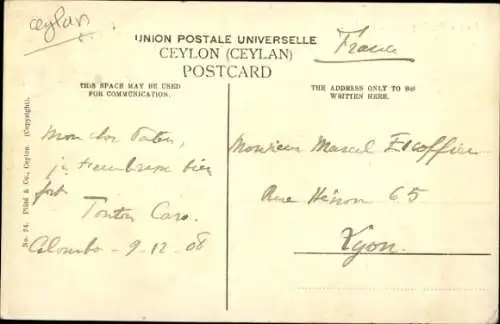 ceylan
UNION POSTALE UNIVERSELLE
CEYLON (CEYLAN)
POSTCARD
France
THIS SPACE MAY BE USED
FOR COMMUNICATION.
THE ADDRESS ONLY TO BE
WRITTEN HERE.
No. 74. Plâté & Co., Ceylon. (Copyright).
Mon cher
je t'embrasse bien
fort
Tonton Caro.
Colombo - 9-12-08
Monsieur Marcel Escoffier
Rue Hénon 65
Lyon.